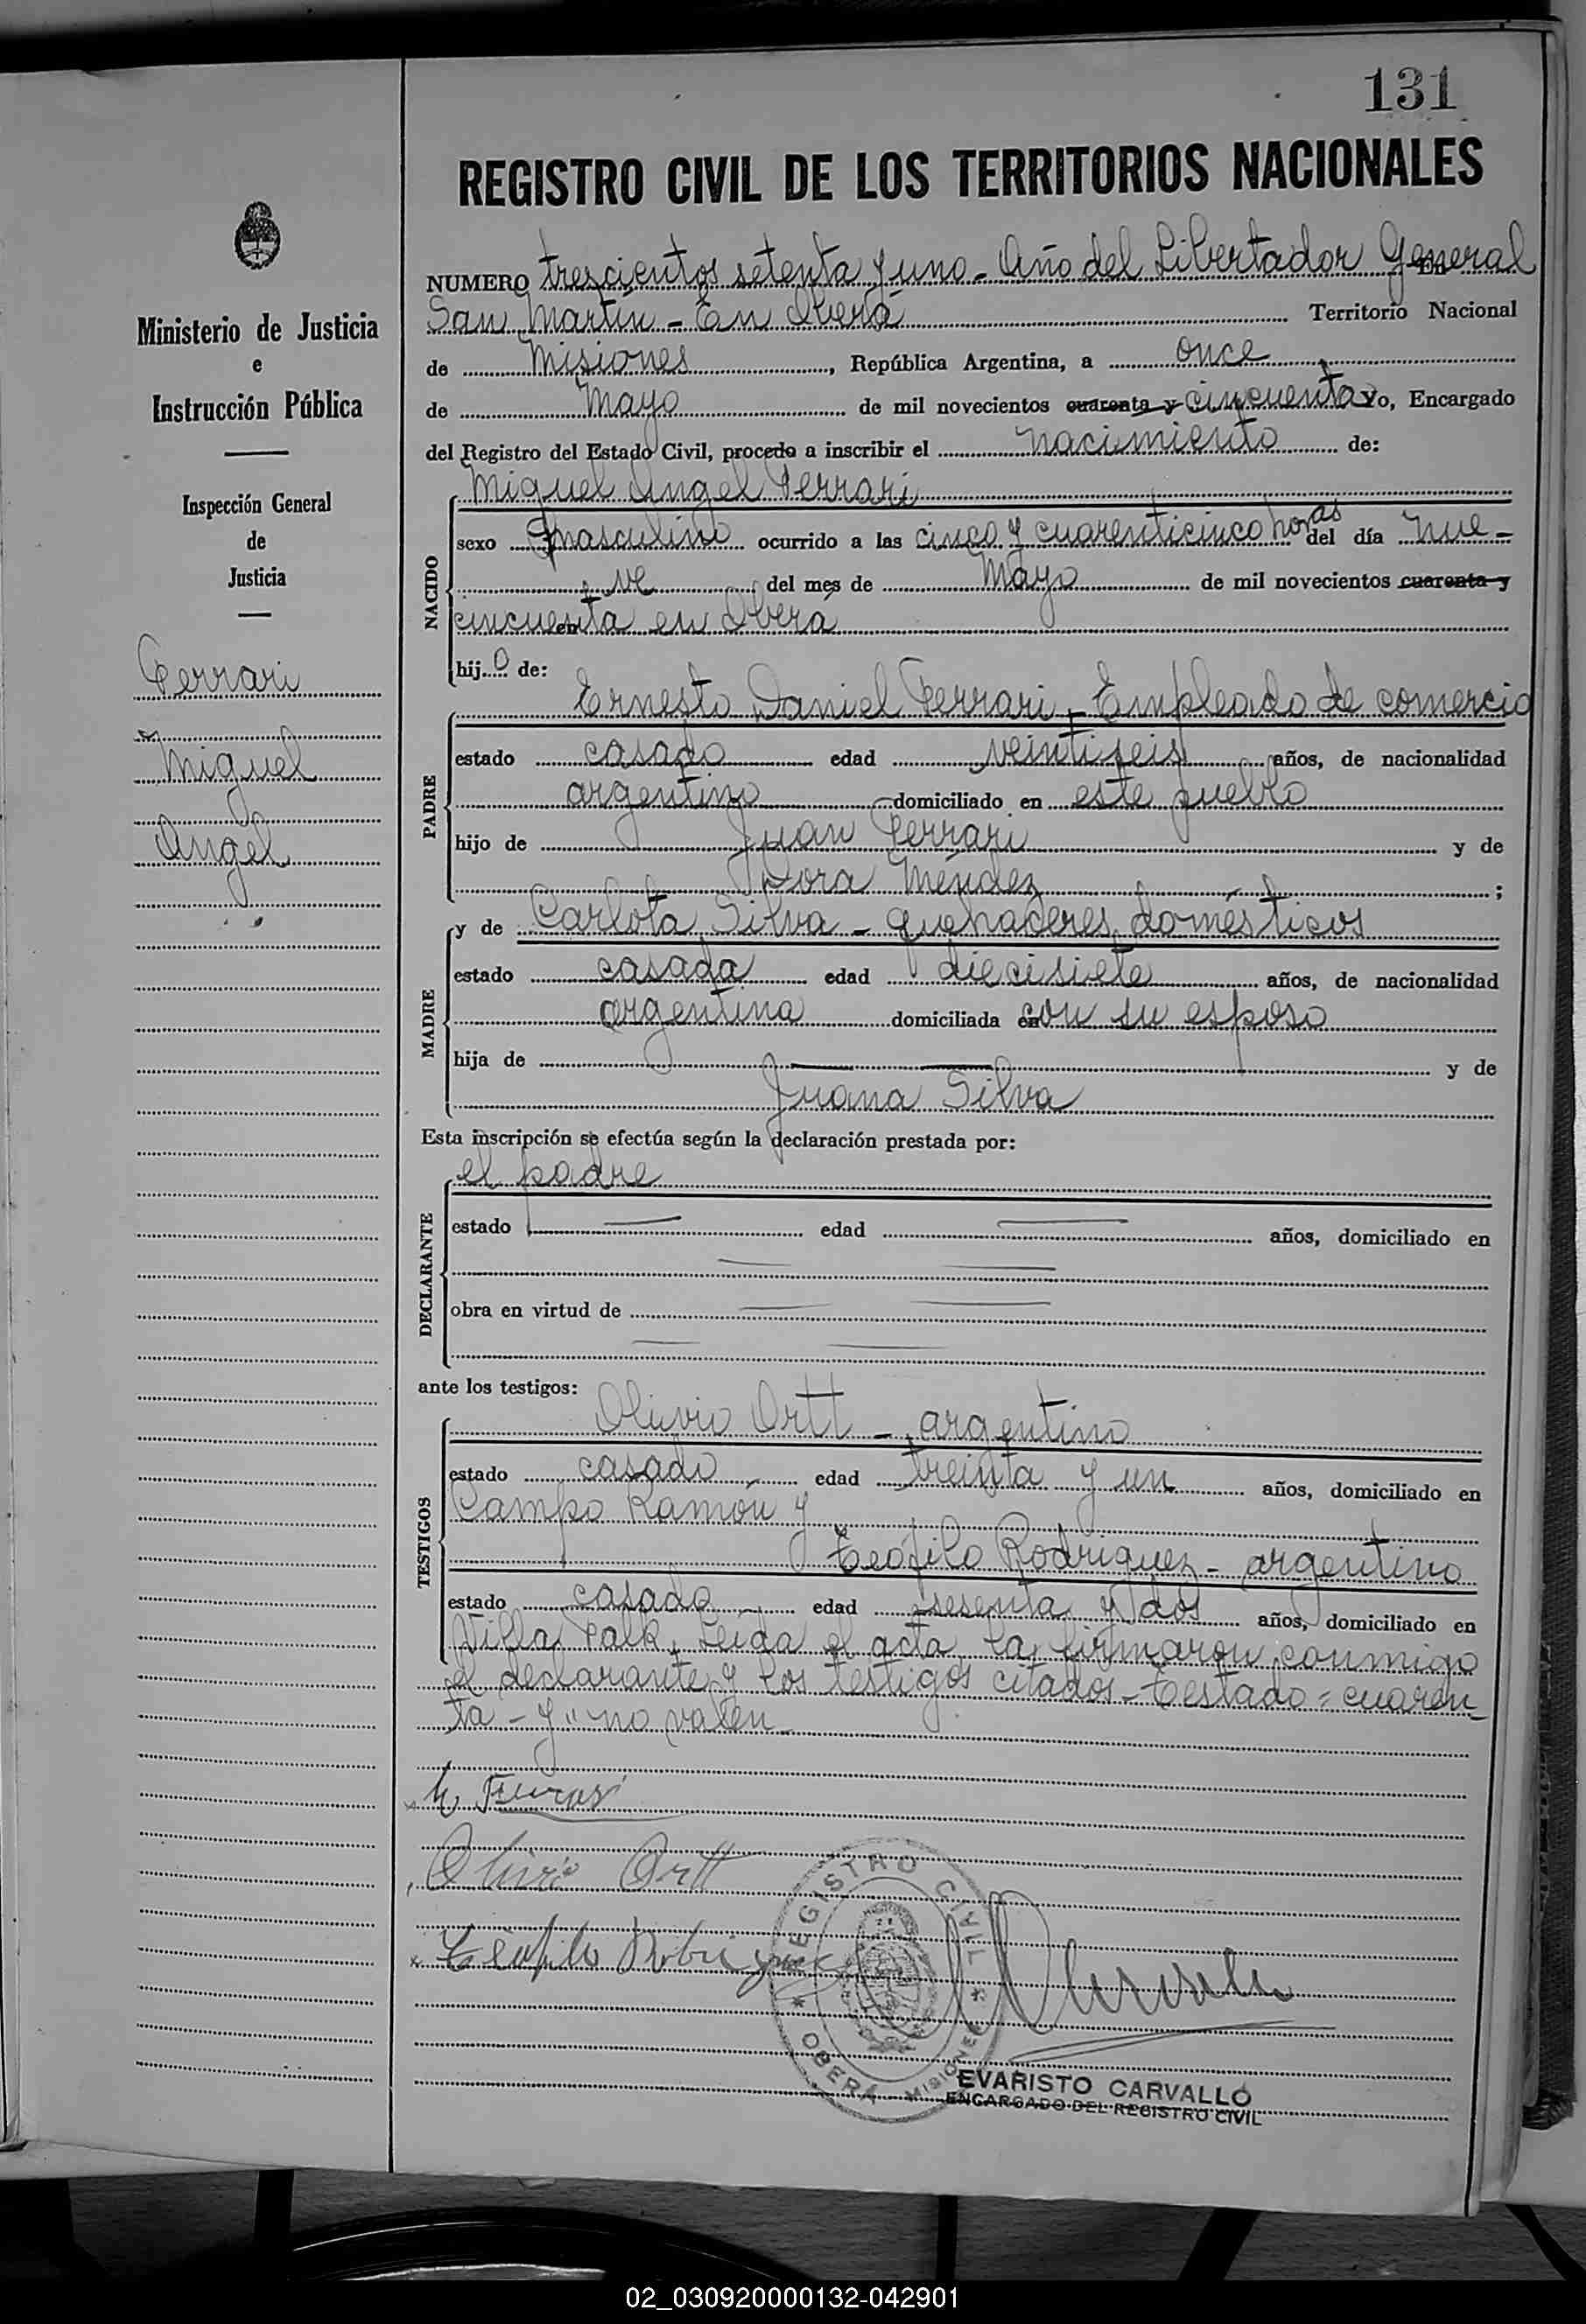 131
REGISTRO CIVIL DE LOS TERRITORIOS NACIONALES
NUMERO trescientos setenta y uno - Año del Libertador General
San Martín - En Oberá Territorio Nacional
de Misiones, República Argentina, a once
de Mayo de mil novecientos cuarenta y cincuenta Yo, Encargado
del Registro del Estado Civil, procedo a inscribir el nacimiento de:
Ministerio de Justicia
e
Instrucción Pública
Inspección General
de
Justicia
Ferrari
Miguel
Angel
NACIDO
Miguel Angel Ferrari
sexo masculino ocurrido a las cinco y cuarenticinco horas del día nue-
ve del mes de Mayo de mil novecientos cuarenta y
cincuenta en Oberá
hijo de:
PADRE
Ernesto Daniel Ferrari - Empleado de comercio
estado casado edad veintiseis años, de nacionalidad
argentino domiciliado en este pueblo
hijo de Juan Ferrari y de
Dora Méndez ;
MADRE
y de Carlota Silva - quehaceres domésticos
estado casada edad diecisiete años, de nacionalidad
argentina domiciliada con su esposo
hija de y de
Juana Silva
Esta inscripción se efectúa según la declaración prestada por:
DECLARANTE
el padre
estado edad años, domiciliado en
obra en virtud de
ante los testigos:
TESTIGOS
Olivio Ortt - argentino
estado casado edad treinta y un años, domiciliado en
Campo Ramón y
Teófilo Rodriguez - argentino
estado casado edad sesenta y dos años, domiciliado en
Villa Falk. Leída el acta, la firmaron conmigo
el declarante y los testigos citados - Testado = cuaren-
ta - y" no valen -
Olivio Ortt
Teofilo Rodriguez
REGISTRO CIVIL
* OBERÁ - MISIONES *
EVARISTO CARVALLO
ENCARGADO DEL REGISTRO CIVIL
02_030920000132-042901